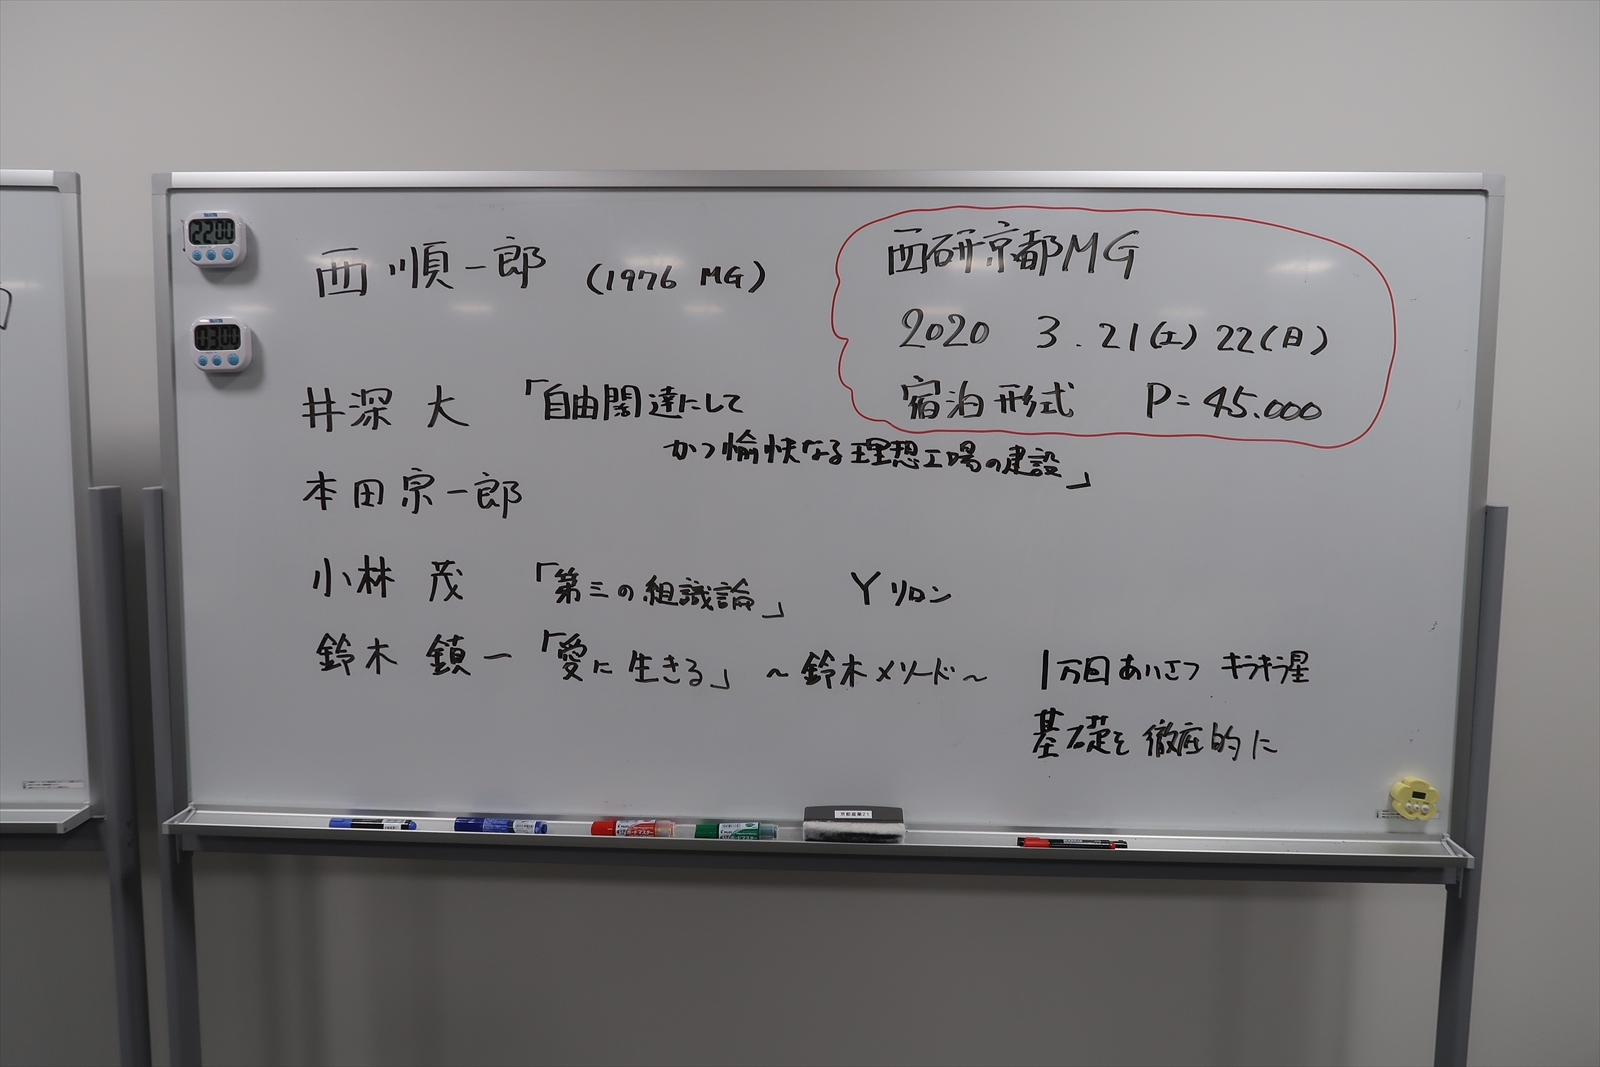 22:00
03:00
西 順一郎 (1976 MG)
西研京都MG
2020 3.21(土) 22(日)
宿泊形式 P=45.000
井深 大 「自由闊達にして
かつ愉快なる理想工場の建設」
本田宗一郎
小林 茂 「第三の組識論」 Yリロン
鈴木 鎮一 「愛に生きる」 ～鈴木メソード～ 1万回あいさつ キラキラ星
基礎を徹底的に
京都産業21